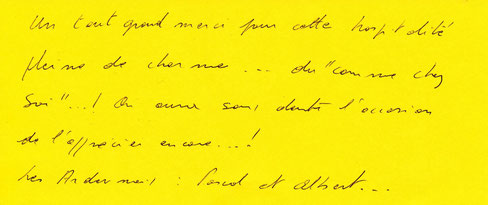 Un tout grand merci pour cette hospitalité
pleine de charme ... du "comme chez
soi"...! On aura sans doute l'occasion
de l'apprécier encore...!
Les Ardennais : Pascal et Albert...